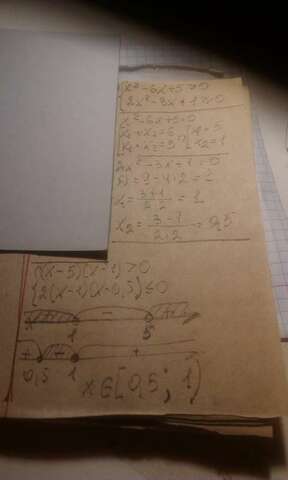 x² - 6x + 5 > 0
2x² - 3x + 1 ≤ 0
x² - 6x + 5 = 0
x₁ + x₂ = 6 x₁ = 5
x₁ · x₂ = 5 x₂ = 1
2x² - 3x + 1 = 0
D = 9 - 4·2 = 1
x₁ = (3+1)/(2·2) = 1
x₂ = (3-1)/(2·2) = 0,5
(x-5)(x-1) > 0
2(x-1)(x-0,5) ≤ 0
+ - +
1 5
+ - +
0,5 1
x ∈ [0,5; 1)